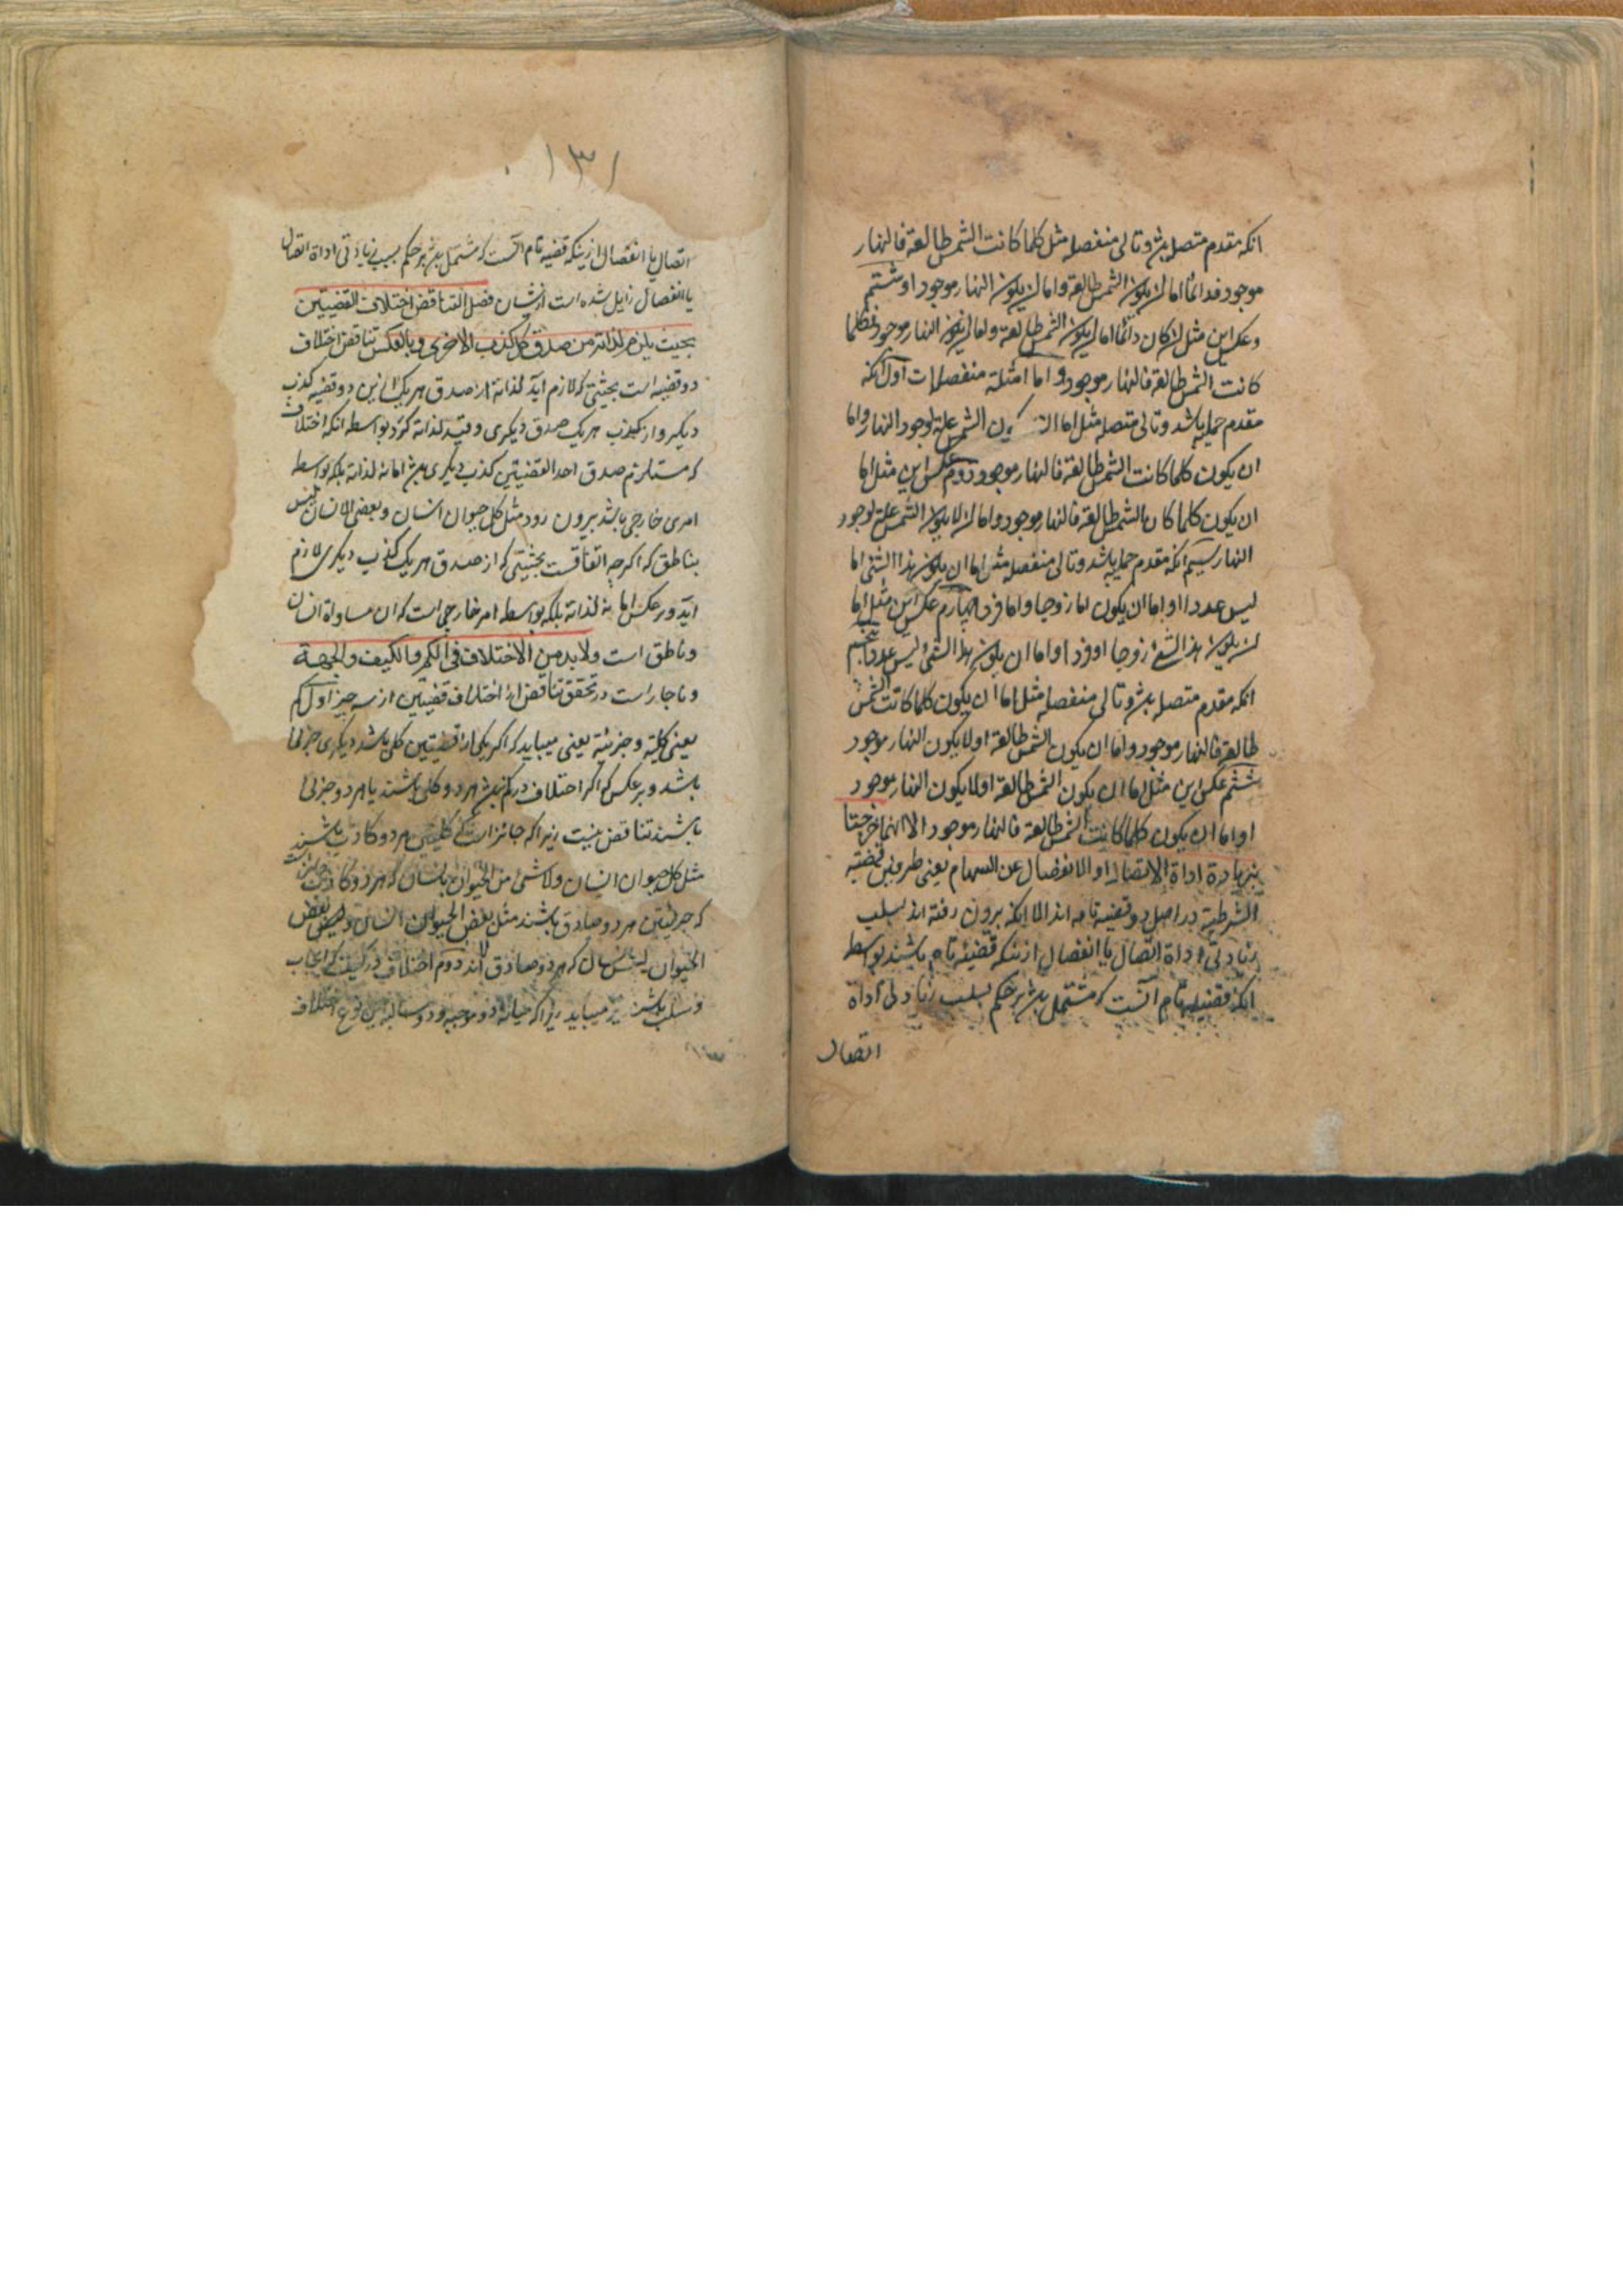 انکه مقدم متصله بشد و تالی منفصله مثل کلما کانت الشمس طالعة فالنهار
موجود فدائما اما ان یکون الشمس طالعة واما ان یکون النهار موجود او ششم
وعکس این مثل ان کان دائما اما ان یکون الشمس طالعة واما ان یکون النهار موجود فکلما
کانت الشمس طالعة فالنهار موجود و اما امثله منفصلات اول انکه
مقدم حملیه باشد وتالی متصله مثل اما ان یکون الشمس علة لوجود النهار واما
ان یکون کلما کانت الشمس طالعة فالنهار موجود دوم عکس این مثل اما
ان یکون کلما کان الشمس طالعة فالنهار موجود واما ان لا یکون الشمس علة لوجود
النهار سیم انکه مقدم حملیه باشد وتالی منفصله مثل اما ان یکون هذا الشئ اما
لیس عددا او اما ان یکون اما زوجا واما فردا چهارم عکس این مثل اما
ان یکون هذا الشئ زوجا او فردا واما ان یکون هذا الشئ لیس عددا پنجم
انکه مقدم متصله بشد وتالی منفصله مثل اما ان یکون کلما کانت الشمس
طالعة فالنهار موجود واما ان یکون الشمس طالعة اولا یکون النهار موجود
ششم عکس این مثل اما ان یکون الشمس طالعة اولا یکون النهار موجود
او اما ان یکون کلما کانت الشمس طالعة فالنهار موجود الا انهما خرجتا
بزیادة اداة الاتصال او الانفصال عن التمام یعنی طرفین قضیه
الشرطیة در اصل دو قضیه تامه اند الا اینکه برون رفته اند بسبب
زیادتی اداة اتصال یا انفصال ازینکه قضیه تام باشند بواسطه
انکه قضیه تام آنست که مشتمل بشد بر حکم بسبب زیادتی اداة
اتصال
١٣١
اتصال یا انفصال ازینکه قضیه تام آنست که مشتمل بشد بر حکم بسبب زیادتی اداة اتصال
یا انفصال زایل شده است ازیشان فصل التناقض اختلاف القضیتین
بحیث یلزم لذاته من صدق کل کذب الاخری وبالعکس تناقض اختلاف
دو قضیه است بحیثیتی که لازم آید لذاته از صدق هر یک ازین دو قضیه کذب
دیگر و از کذب هر یک صدق دیگری و قید لذاته کرد بواسطه انکه اختلاف
که مستلزم صدق احد القضیتین کذب دیگری بشد اما نه لذاته بلکه بواسطه
امری خارجی باشد بیرون رود مثل کل حیوان انسان وبعض الانسان لیس
بناطق که اگرچه اتفاقست بحیثیتی که از صدق هر یک کذب دیگری لازم
آید وبر عکس اما نه لذاته بلکه بواسطه امر خارجی است که ان مساواة انسان
وناطق است ولابد من الاختلاف فی الکم والکیف والجهة
وناچار است در تحقق تناقض از اختلاف قضیتین از سه چیز اول کم
یعنی کلیة وجزئیة یعنی میباید که اگر یکی از قضیتین کلی باشد دیگری جزئی
باشد وبر عکس که اگر اختلاف در کم نبشد هر دو کلی باشند یا هر دو جزئی
باشند تناقض نیست زیرا که جائز است که کلیتین هر دو کاذب باشند
مثل کل حیوان انسان ولاشئ من الحیوان بانسان که هر دو کاذبند وجایزست
که جزئیتین هر دو صادق باشند مثل بعض الحیوان انسان وبعض
الحیوان لیس بانسان که هر دو صادق اند دوم اختلاف در کیف که ایجاب
وسلب باشد نیز میباید زیرا که میانه دو موجبه ودو سالبه این نوع اختلاف